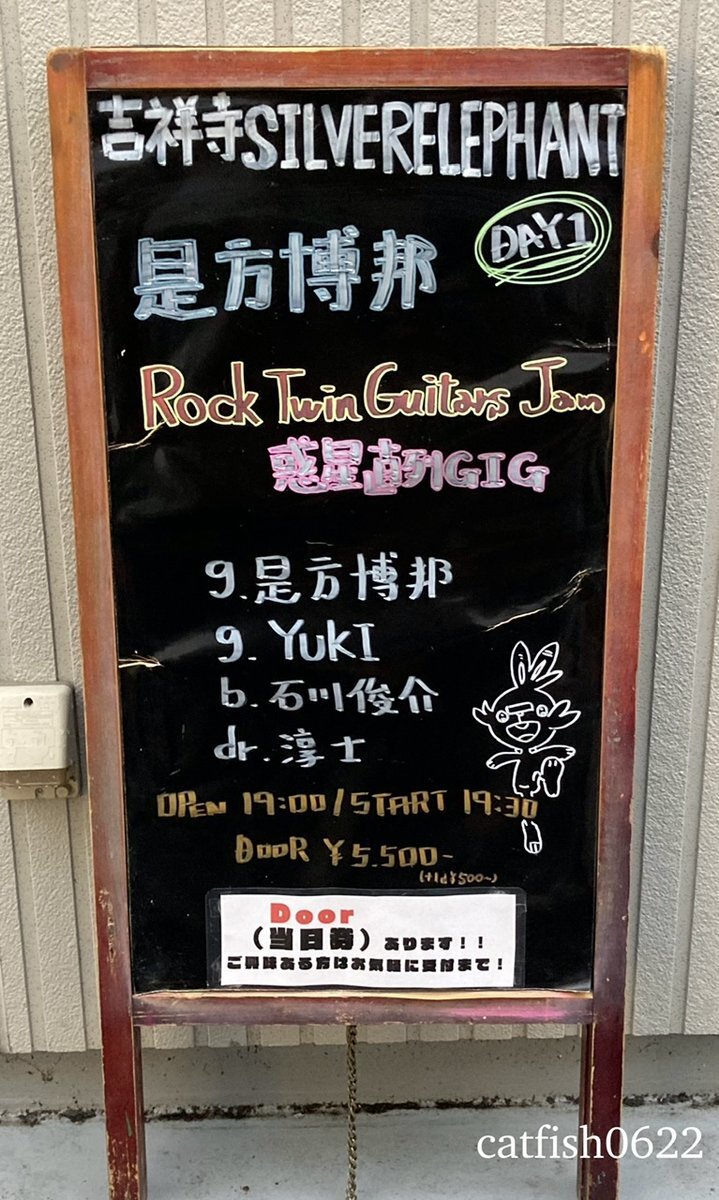 吉祥寺SILVERELEPHANT
DAY1
是方博邦
Rock Twin Guitars Jam
惑星直列GIG
g.是方博邦
g. YUKI
b.石川俊介
dr.淳士
OPEN 19:00/START 19:30
DOOR ¥5.500-
(+1d¥500-)
Door
(当日券)あります!!
ご興味ある方はお気軽に受付まで!
catfish0622